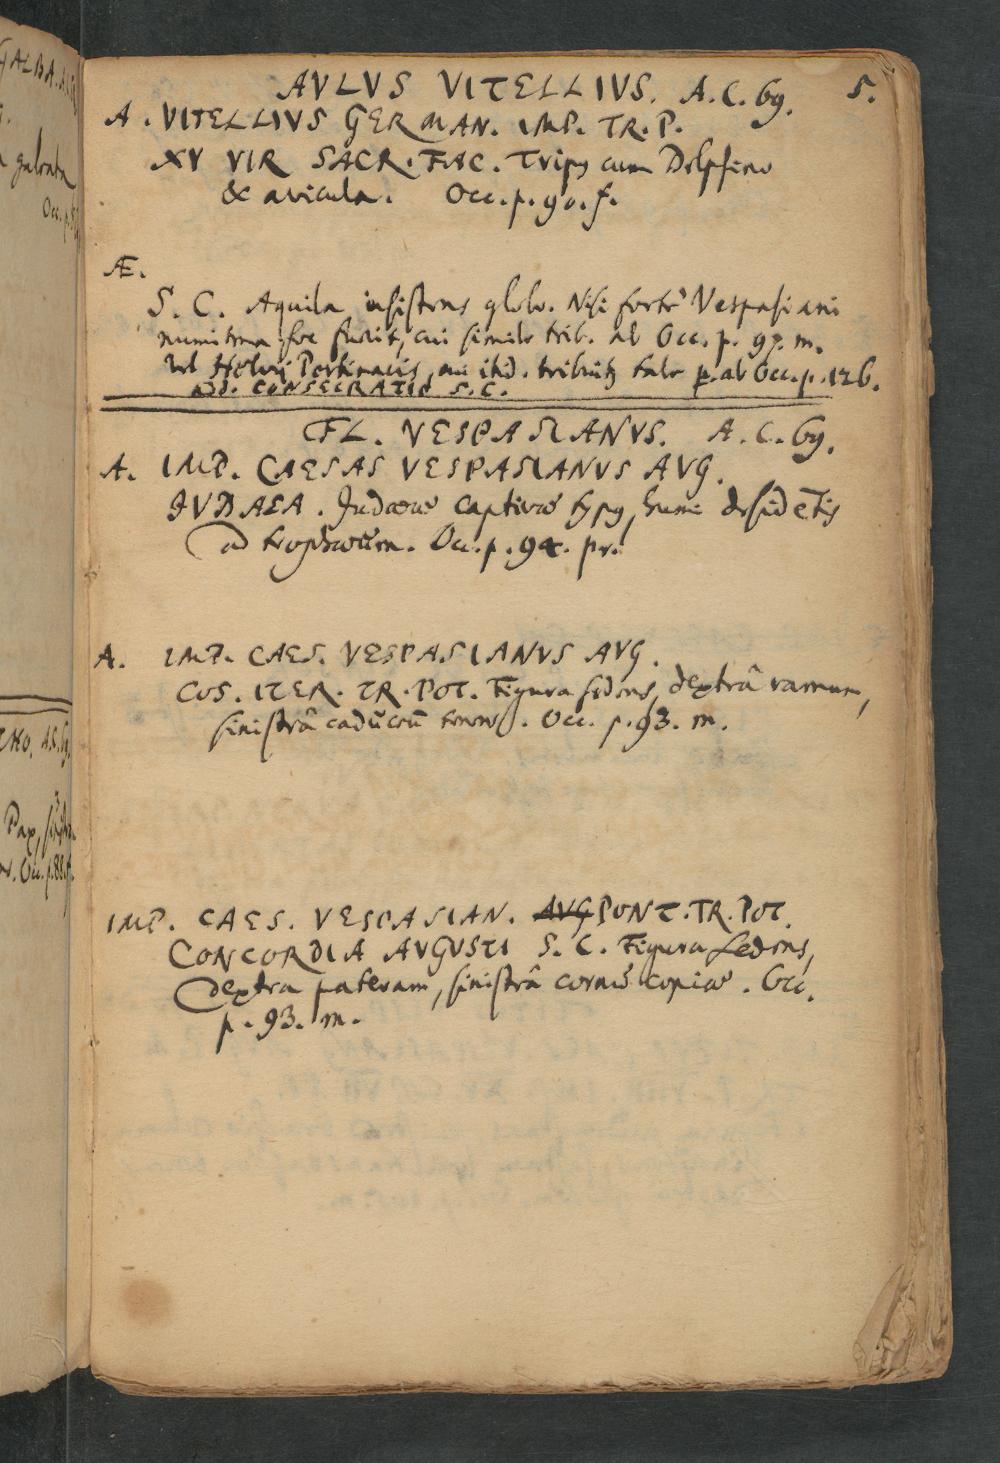 AVLVS VITELLIVS. A.C. 69. 5.
A. VITELLIVS GERMAN. IMP. TR. P.
XV VIR SACR. FAC. Tripus cum Delphino
& avicula. Occ. p. 90. f.
Æ.
S. C. Aquila insistens globo. Nisi fortè Vespasiani
numisma hoc fuerit, cui simile trib. ab Occ. p. 97. m.
vel Helvij Pertinacis, cui itid. tribuitur tale p. ab Occ. p. 126.
add. CONSECRATIO S. C.
FL. VESPASIANVS. A. C. 69.
A. IMP. CAESAS VESPASIANVS AVG.
IVDAEA. Judaeae captivae typus, humi desidētis
ad trophaeum. Occ. p. 94. pr.
A. IMP. CAES. VESPASIANVS AVG.
COS. ITER. TR. POT. Figura sedens, dextrâ ramum,
sinistrâ caduceū tenens. Occ. p. 93. m.
IMP. CAES. VESPASIAN. AVG PONT. TR. POT.
CONCORDIA AVGVSTI S. C. Figura sedens,
dextra pateram, sinistrâ cornu copiae. Occ.
p. 93. m.
GALBA.
galeata
Occ. p.
Pax,
Occ. p. 88. f.